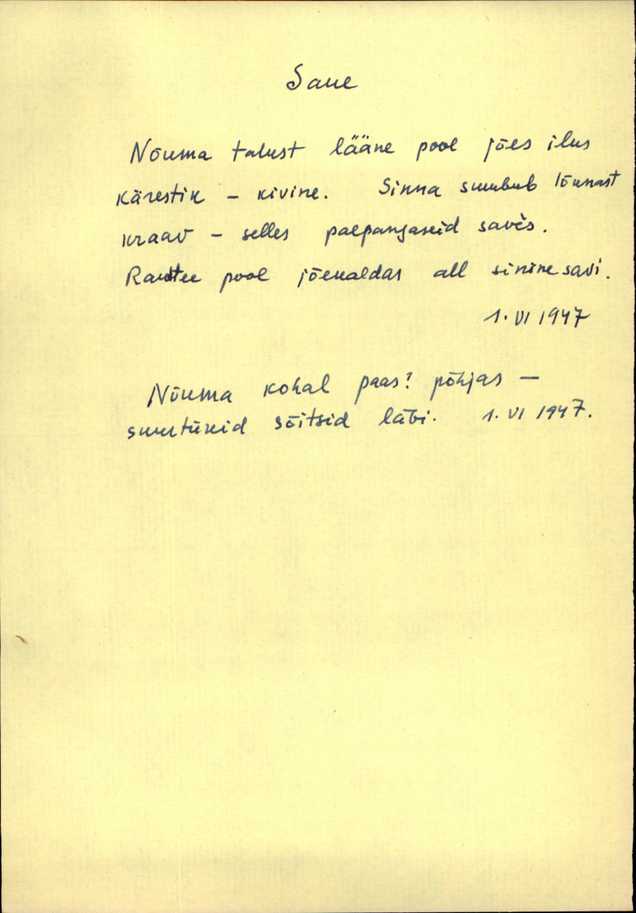 Saue
Nõuma talust lääne pool jões ilus
kärestik – kivine. Sinna suubub lõunast
kraav – selles paepangaseid savės.
Raudtee pool jõekaldas all sinine savi.
1. VI 1947
Nõuma kohal paas? põhjas –
suurtükid sõitsid läbi. 1. VI 1947.